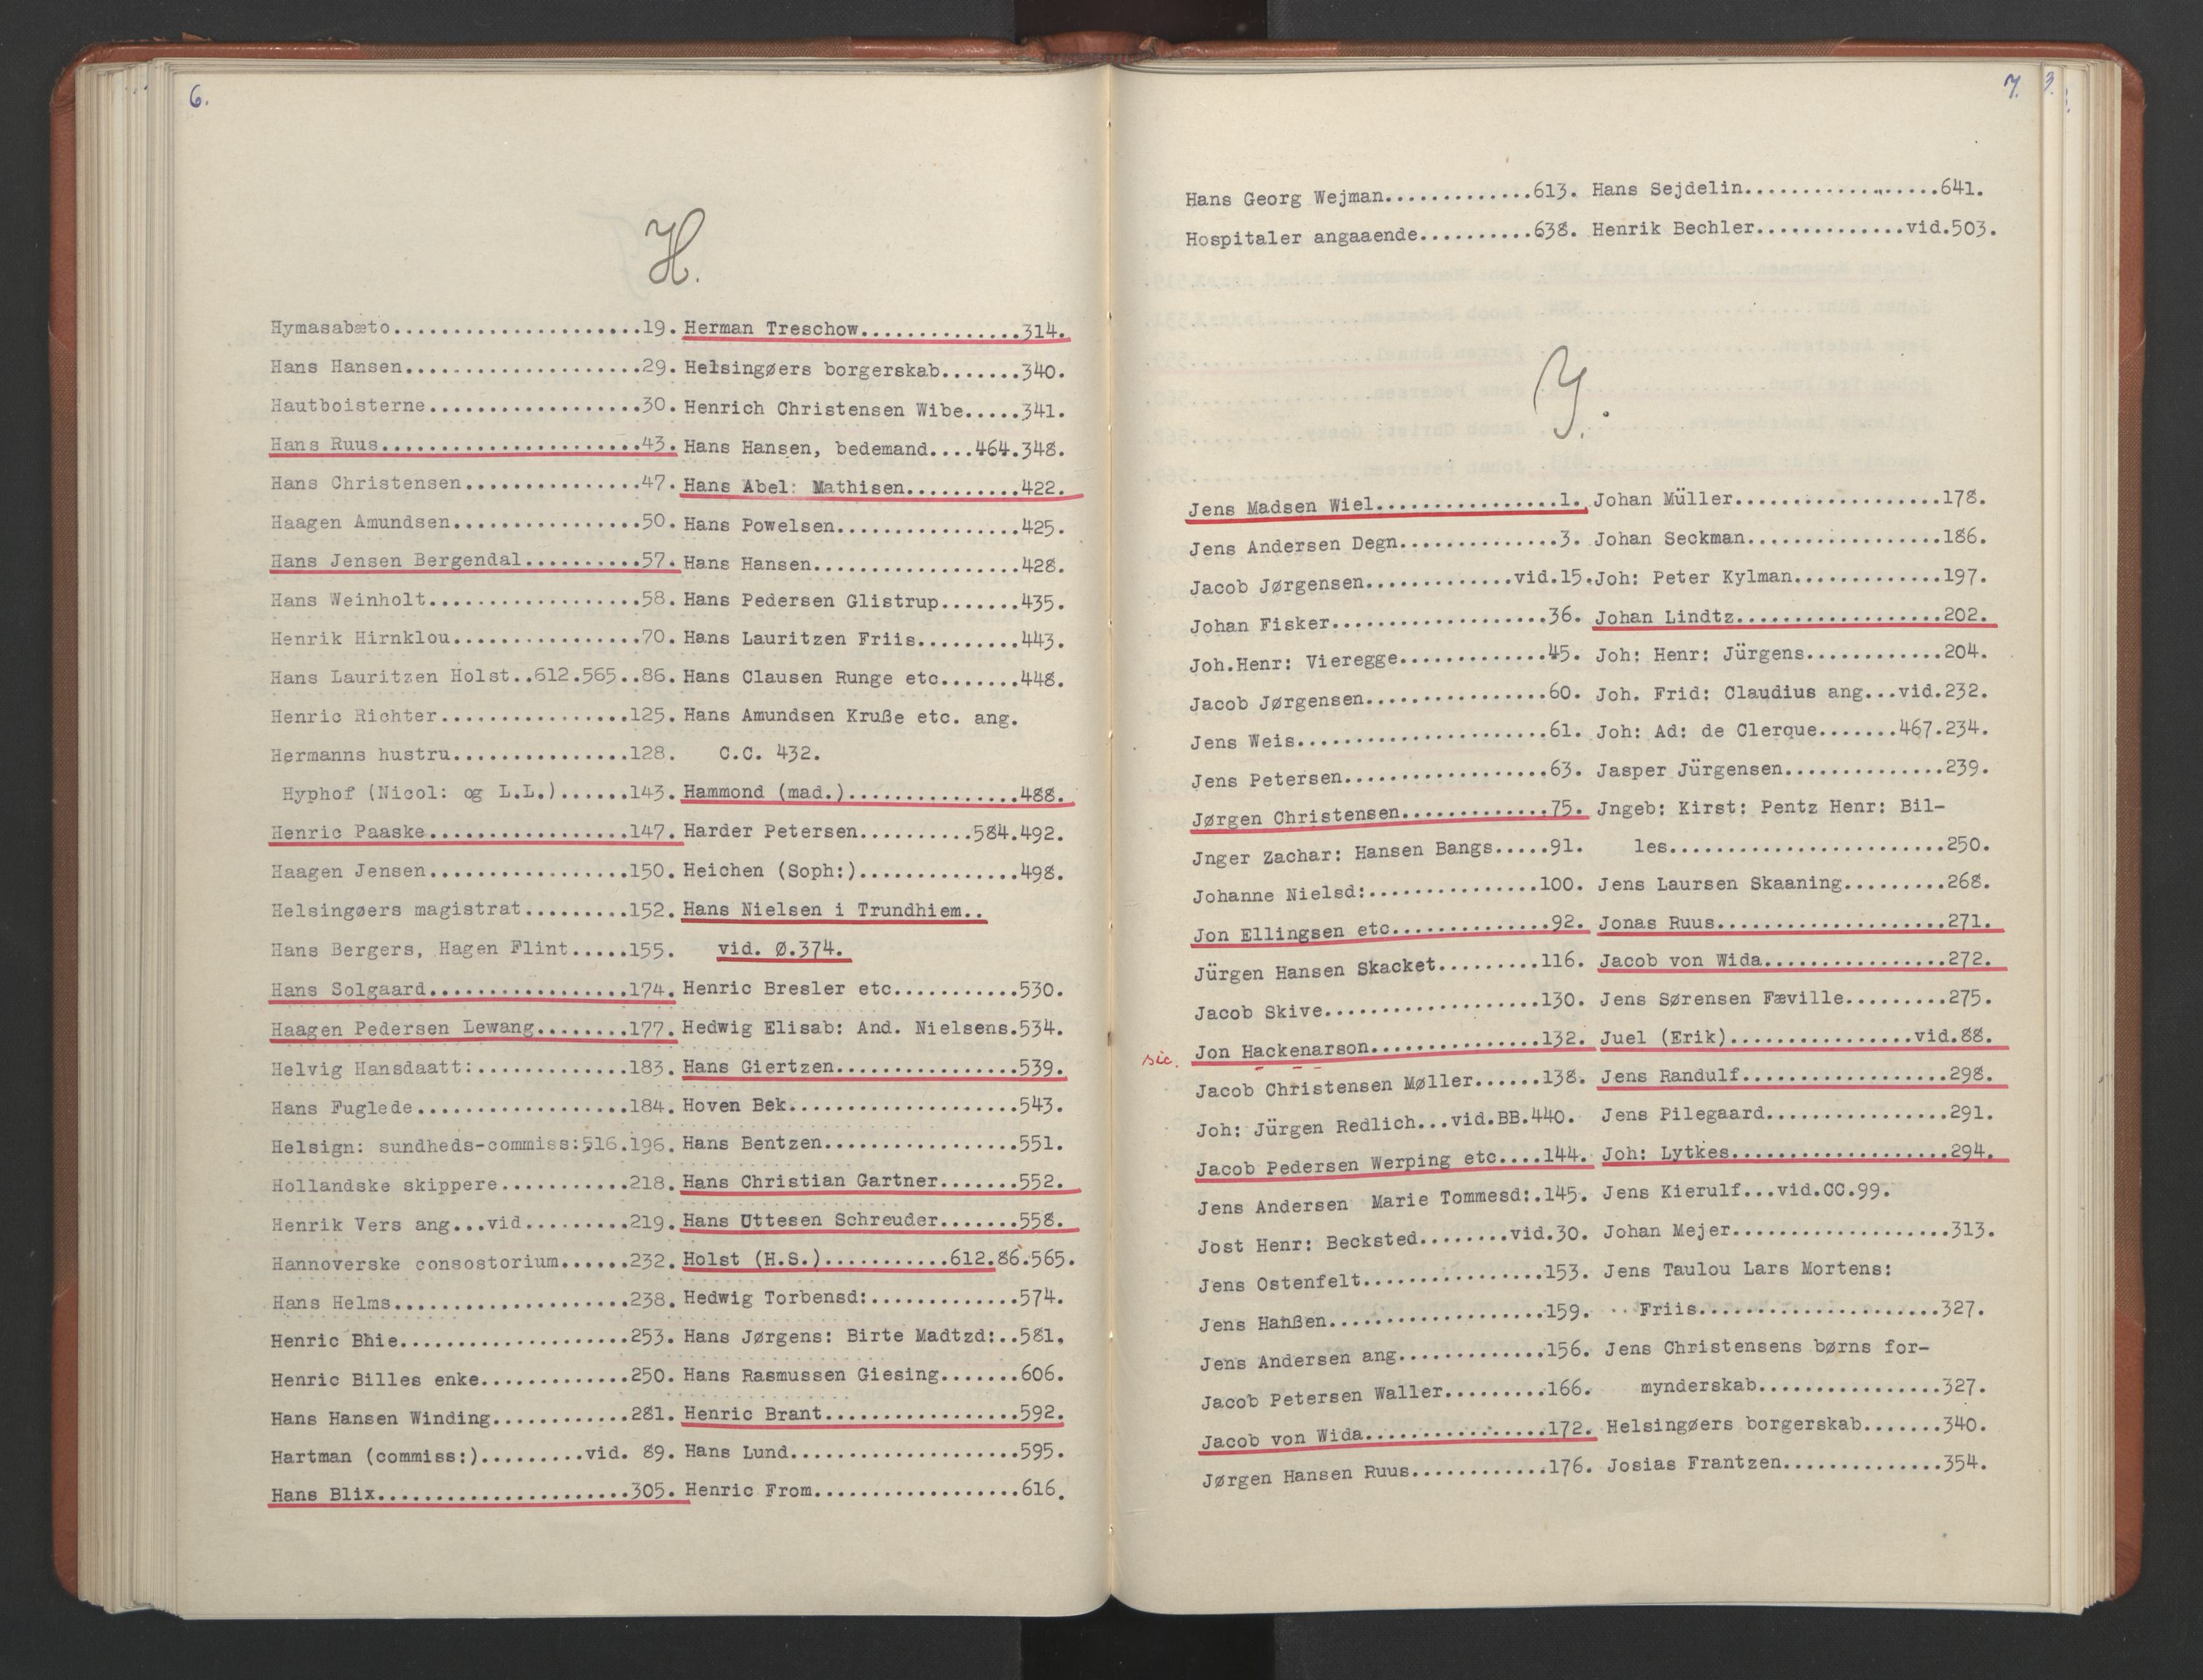 6.
H.
Hymasabæto......................19.
Hans Hansen.....................29.
Hautboisterne...................30.
Hans Ruus.......................43.
Hans Christensen................47.
Haagen Amundsen.................50.
Hans Jensen Bergendal..........57.
Hans Weinholt...................58.
Henrik Hirnklou.................70.
Hans Lauritzen Holst..612.565..86.
Henric Richter................125.
Hermanns hustru...............128.
Hyphof (Nicol: og L.L.)......143.
Henric Paaske.................147.
Haagen Jensen.................150.
Helsingøers magistrat.........152.
Hans Bergers, Hagen Flint.....155.
Hans Solgaard.................174.
Haagen Pedersen Lewang........177.
Helvig Hansdaatt:.............183.
Hans Fuglede..................184.
Helsign: sundheds-commiss:516.196.
Hollandske skippere...........218.
Henrik Vers ang...vid.........219.
Hannoverske consostorium......232.
Hans Helms....................238.
Henric Bhie...................253.
Henric Billes enke............250.
Hans Hansen Winding...........281.
Hartman (commiss:).........vid. 89.
Hans Blix.....................305.
Herman Treschow..............314.
Helsingøers borgerskab.......340.
Henrich Christensen Wibe.....341.
Hans Hansen, bedemand....464.348.
Hans Abel: Mathisen..........422.
Hans Powelsen................425.
Hans Hansen..................428.
Hans Pedersen Glistrup.......435.
Hans Lauritzen Friis.........443.
Hans Clausen Runge etc.......448.
Hans Amundsen Kruße etc. ang.
C.C. 432.
Hammond (mad.)...............488.
Harder Petersen..........584.492.
Heichen (Soph:)..............498.
Hans Nielsen i Trundhiem..
vid. Ø.374.
Henric Bresler etc...........530.
Hedwig Elisab: And. Nielsens.534.
Hans Giertzen................539.
Hoven Bek....................543.
Hans Bentzen.................551.
Hans Christian Gartner.......552.
Hans Uttesen Schreuder.......558.
Holst (H.S.)...........612.86.565.
Hedwig Torbensd:.............574.
Hans Jørgens: Birte Madtzd:..581.
Hans Rasmussen Giesing.......606.
Henric Brant.................592.
Hans Lund....................595.
Henric From..................616.
7.
3.
Hans Georg Wejman.............613. Hans Sejdelin..................641.
Hospitaler angaaende..........638. Henrik Bechler.............vid.503.
J.
Jens Madsen Wiel................1.
Jens Andersen Degn..............3.
Jacob Jørgensen.............vid.15.
Johan Fisker...................36.
Joh.Henr: Vieregge.............45.
Jacob Jørgensen................60.
Jens Weis......................61.
Jens Petersen..................63.
Jørgen Christensen.............75.
Jnger Zachar: Hansen Bangs.....91.
Johanne Nielsd:...............100.
Jon Ellingsen etc..............92.
Jürgen Hansen Skacket.........116.
Jacob Skive...................130.
sic. Jon Hackenarson...............132.
Jacob Christensen Møller......138.
Joh: Jürgen Redlich...vid.BB.440.
Jacob Pedersen Werping etc....144.
Jens Andersen Marie Tommesd:.145.
Jost Henr: Becksted........vid.30.
Jens Ostenfelt................153.
Jens Hanßen...................159.
Jens Andersen ang.............156.
Jacob Petersen Waller.........166.
Jacob von Wida................172.
Jørgen Hansen Ruus............176.
Johan Müller...................178.
Johan Seckman..................186.
Joh: Peter Kylman.............197.
Johan Lindtz...................202.
Joh: Henr: Jürgens............204.
Joh. Frid: Claudius ang...vid.232.
Joh: Ad: de Clerque.......467.234.
Jasper Jürgensen..............239.
Jngeb: Kirst: Pentz Henr: Bil-
les.........................250.
Jens Laursen Skaaning.........268.
Jonas Ruus.....................271.
Jacob von Wida................272.
Jens Sørensen Fæville.........275.
Juel (Erik)................vid.88.
Jens Randulf...................298.
Jens Pilegaard................291.
Joh: Lytkes....................294.
Jens Kierulf...vid.CC.99.
Johan Mejer....................313.
Jens Taulou Lars Mortens:
Friis......................327.
Jens Christensens børns for-
mynderskab.................327.
Helsingøers borgerskab.......340.
Josias Frantzen...............354.